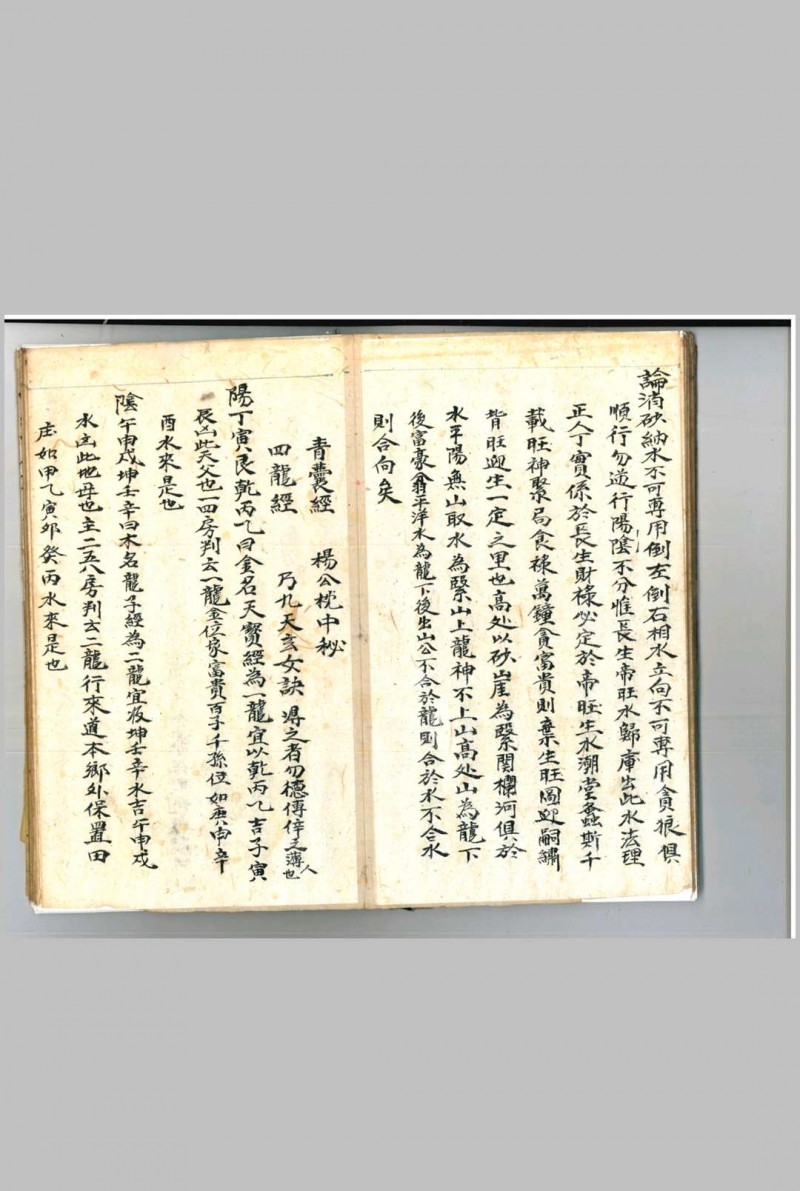 論消砂納水不可專用倒左倒右相水立向不可專用貪狼俱
順行勿逆行陽陰不分惟長生帝旺水歸庫出此水法理
正人丁實係於長生財祿必定於帝旺生水潮堂螽斯千
載旺神聚局食祿萬鐘貪富貴則棄生旺圖迎嗣續
背旺迎生一定之里也高处以砂崖為緊関欄河俱於
水平陽無山取水為緊山上龍神不上山高处山為龍下
後富豪翁平洋水為龍下後出山公不合於龍則合於水不合水
則合向矣
青囊經 楊公枕中秘
四龍經 乃九天玄女訣 得之者勿德傳倖之薄人也
陽丁寅艮乾丙乀曰金名天寶經為一龍宜以乾丙乀吉子寅
艮凶此天父也一四房判云一龍金位家富貴百子千孫位如庚申辛
酉水來是也
陰午申戌坤壬辛曰木名龍子經為二龍宜收坤壬辛水吉午申戌
水凶此地母也主二五八房判云二龍行來道本鄉外保置田
庄如甲乀寅夘癸丙水來是也